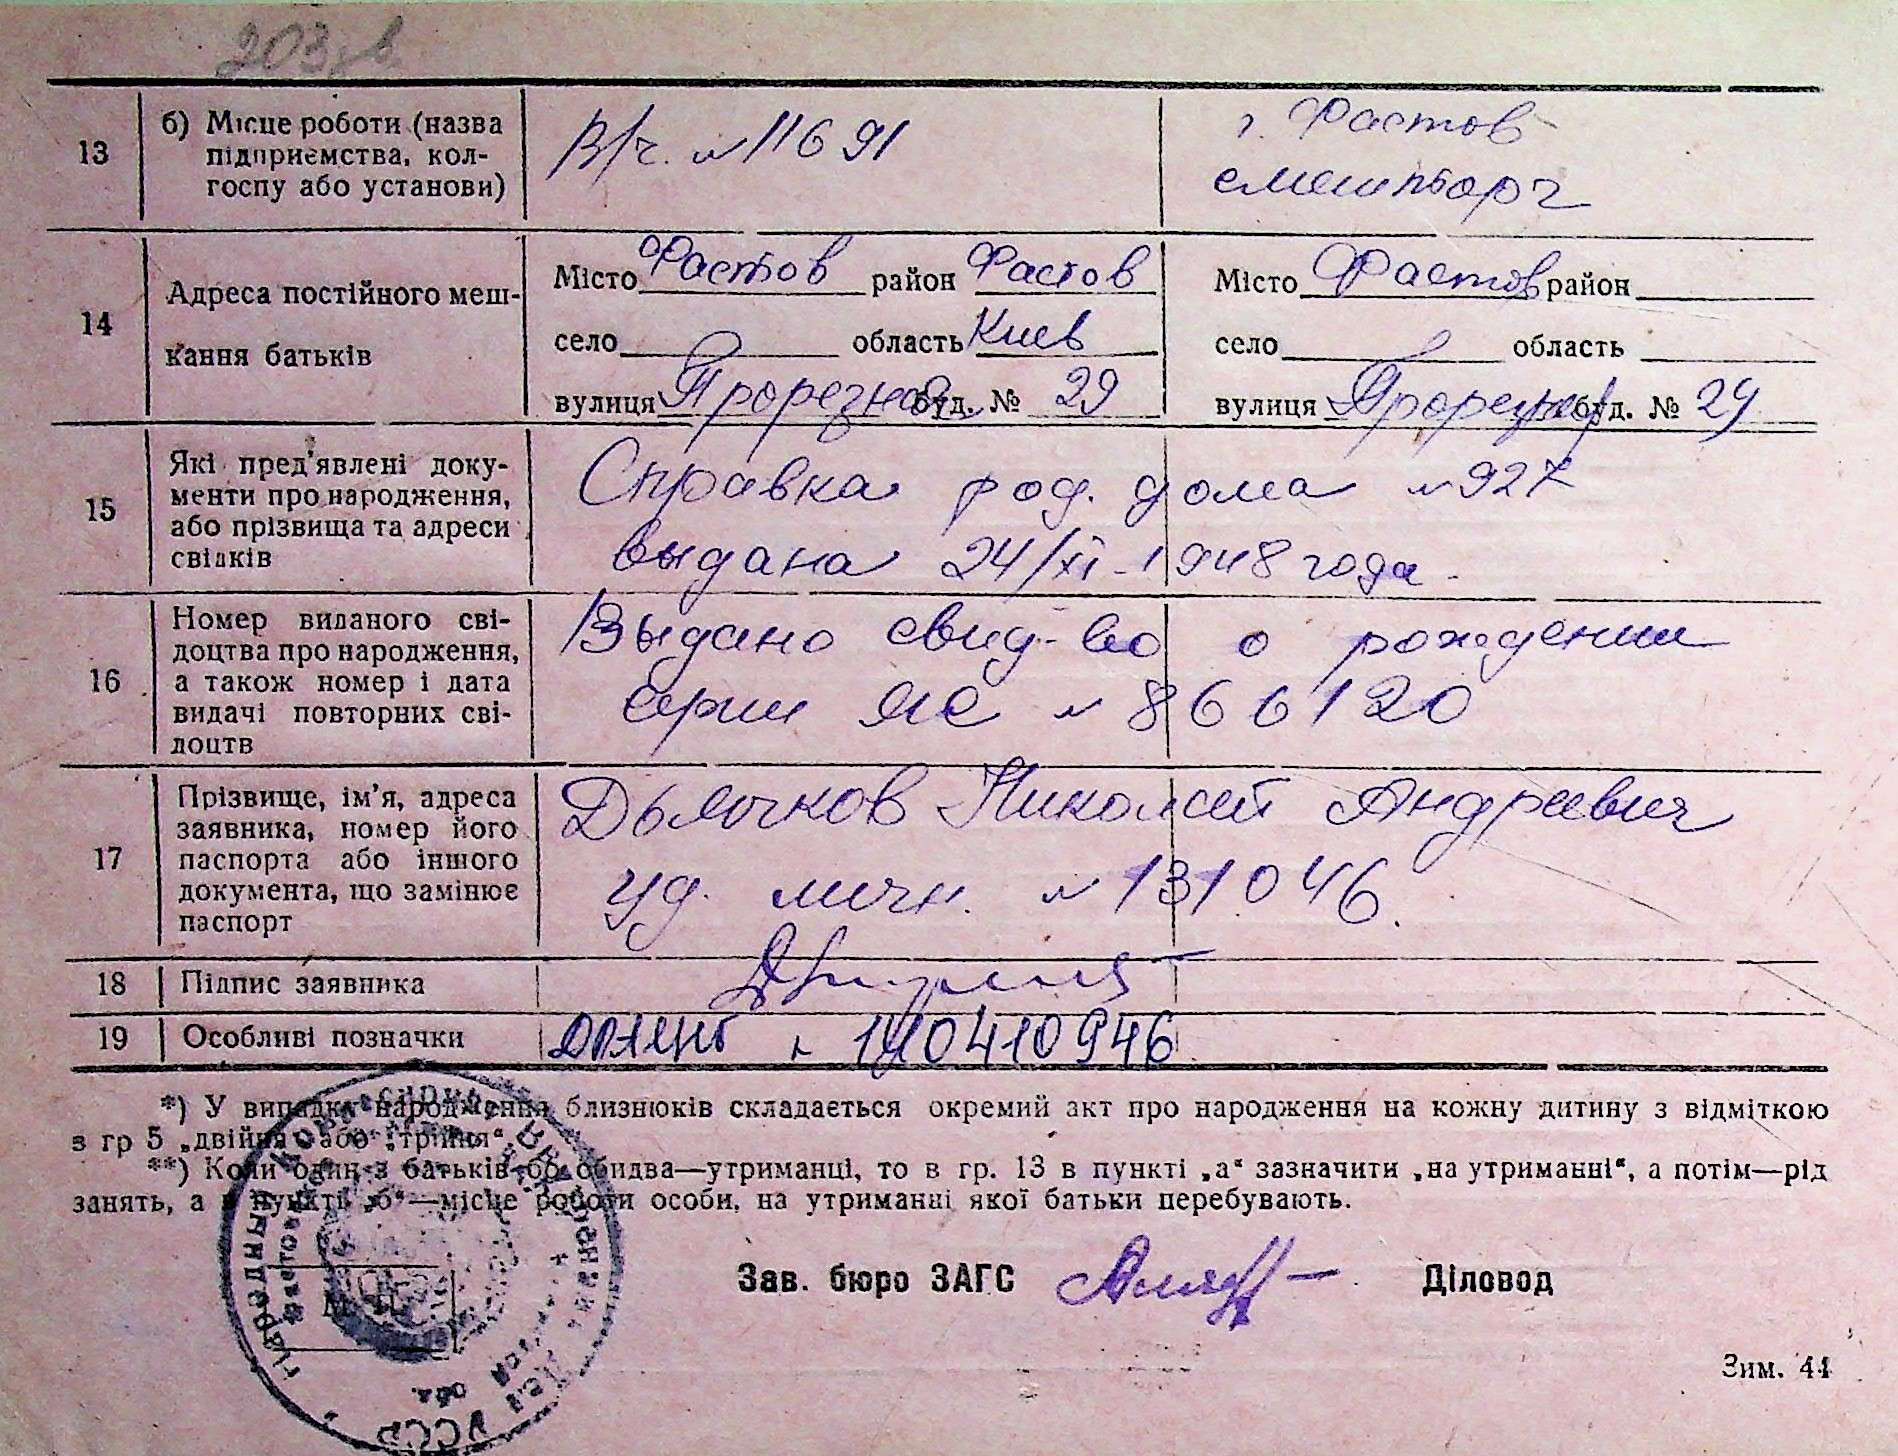 203
13
б) Місце роботи (назва
підприємства, кол-
госпу або установи)
В/ч. № 11691
г. Фастов
смешторг
14
Адреса постійного меш-
кання батьків
Місто Фастов район Фастов
село область Киев
вулиця Прорезная буд. № 29
Місто Фастов район
село область
вулиця Прорезная буд. № 29
15
Які пред'явлені доку-
менти про народження,
або прізвища та адреси
свідків
Справка род. дома № 927
выдана 24/XI-1948 года.
16
Номер виданого сві-
доцтва про народження,
а також номер і дата
видачі повторних сві-
доцтв
Выдано свид-во о рождении
серии ЯС № 866120
17
Прізвище, ім'я, адреса
заявника, номер його
паспорта або іншого
документа, що замінює
паспорт
Дьячков Николай Андреевич
уд. личн. № 131046.
18
Підпис заявника
19
Особливі позначки
*) У випадку народження близнюків складається окремий акт про народження на кожну дитину з відміткою
в гр 5 „двійня“ або „трійня“.
**) Коли один з батьків або обидва—утриманці, то в гр. 13 в пункті „а“ зазначити „на утриманні“, а потім—рід
занять, а в пункті „б“—місце роботи особи, на утриманні якої батьки перебувають.
М. П.
УССР
Зав. бюро ЗАГС
Діловод
Зим. 44